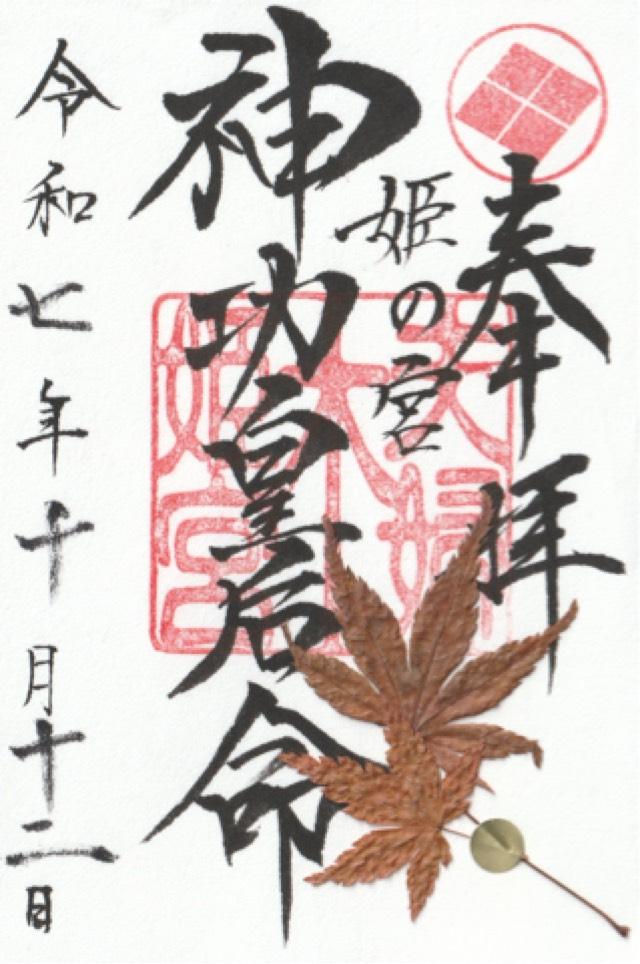 奉拝
姫の宮
神功皇后命
令和七年十月十二日